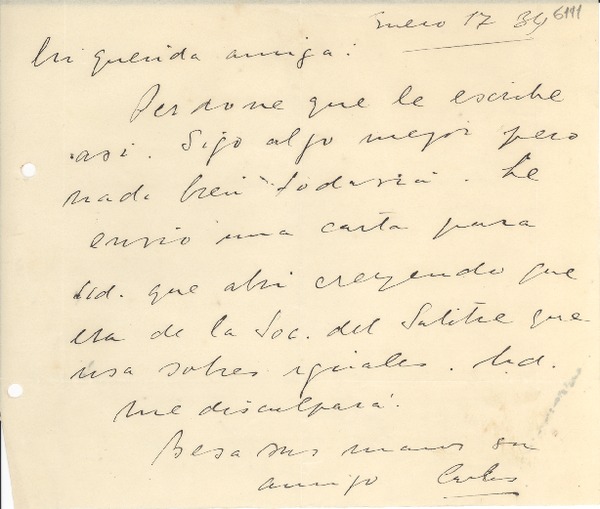 Enero 17 34 6111
Mi querida amiga:
Perdone que le escribe
asi. Sigo algo mejor pero
nada bien todavia. Le
envio una carta para
Ud. que abri creyendo que
era de la Soc. del Salitre que
usa sobres iguales. Ud.
me disculpará.
Besa sus manos su
amigo Carlos